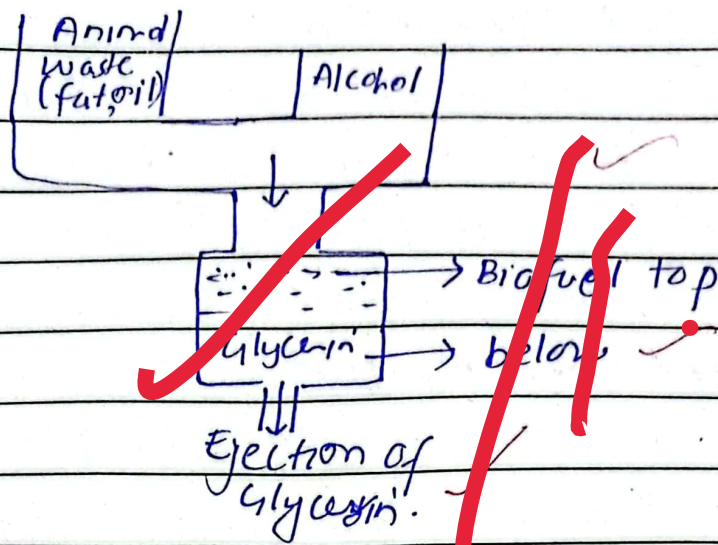 Animal
waste
(fat,oil)
Alcohol
Biofuel top
Glycerin
below
Ejection of
Glycerin.